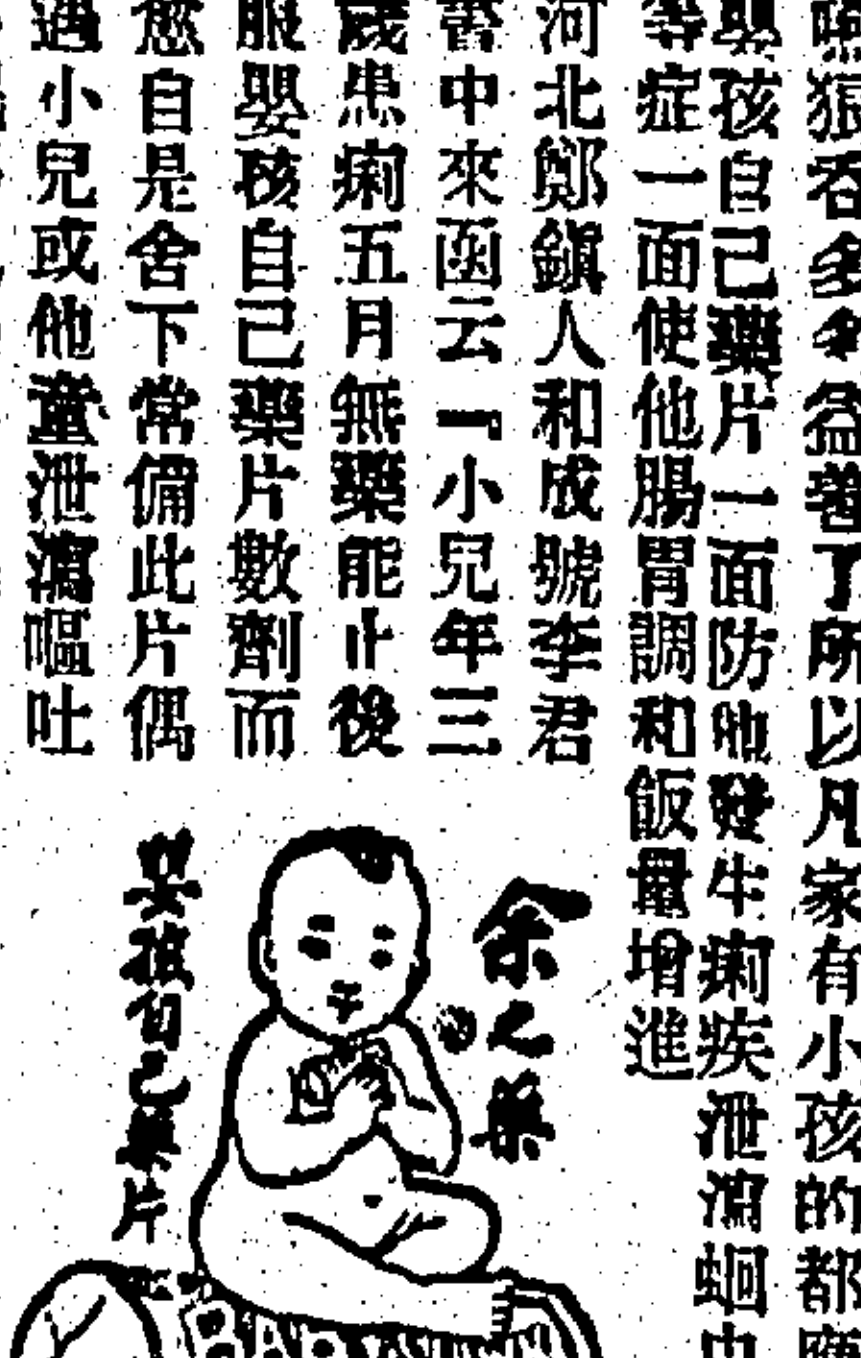 狼吞多多益善了所以凡家有小孩的都應
嬰孩自己藥片一面防他發生痢疾泄瀉蛔虫
等症一面使他腸胃調和飯量增進
河北鄭鎮人和成號李君
書中來函云『小兒年三
歲患痢五月無藥能止後
服嬰孩自己藥片數劑而
愈自是舍下常備此片偶
遇小兒或他童泄瀉嘔吐
余之藥
嬰孩自己藥片